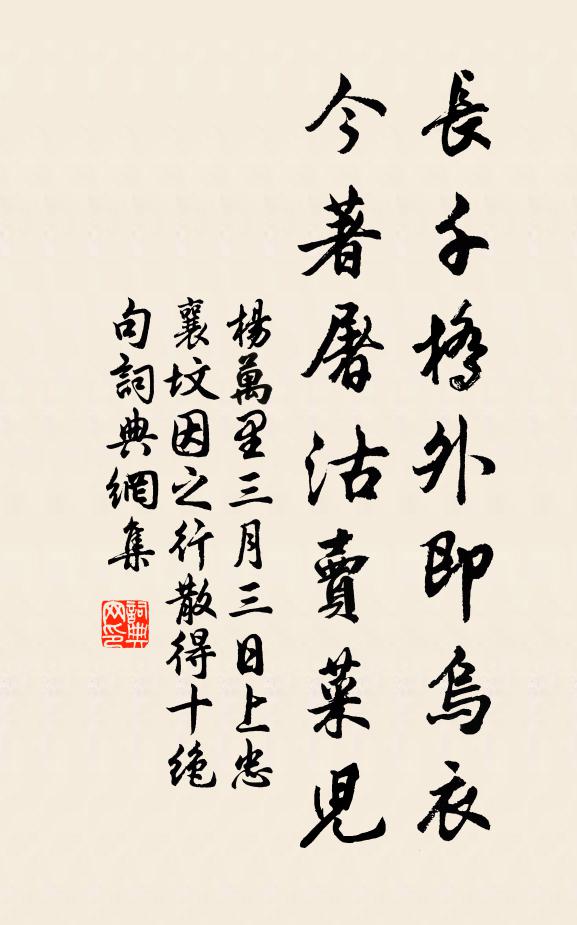 長千橋外即烏衣
今著屠沽賣菜兒
楊萬里三月三日上忠
襄坟因之行散得十绝
句詞典網集
詞典网印